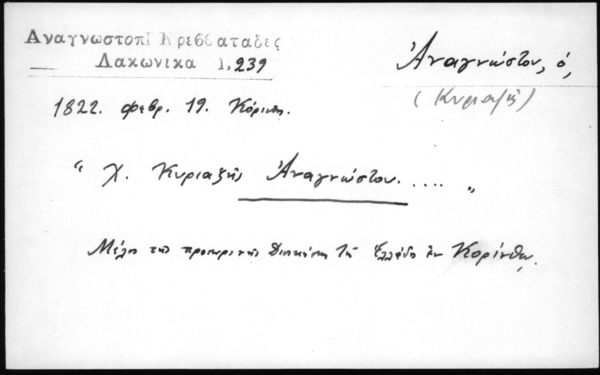 Αναγνωστοπ Κρεββαταδες
Λακωνικα 1,239
Ἀναγνώστου, ὁ,
(Κυριαζῆ)
1822. Φεβρ. 19. Κόρινθ.
" Χ. Κυριαζῆς Ἀναγνώστου..... "
Μέλος τῆς προσωρινῆς Διοικήσεως τῆς Ἑλλάδος ἐν Κορίνθῳ.